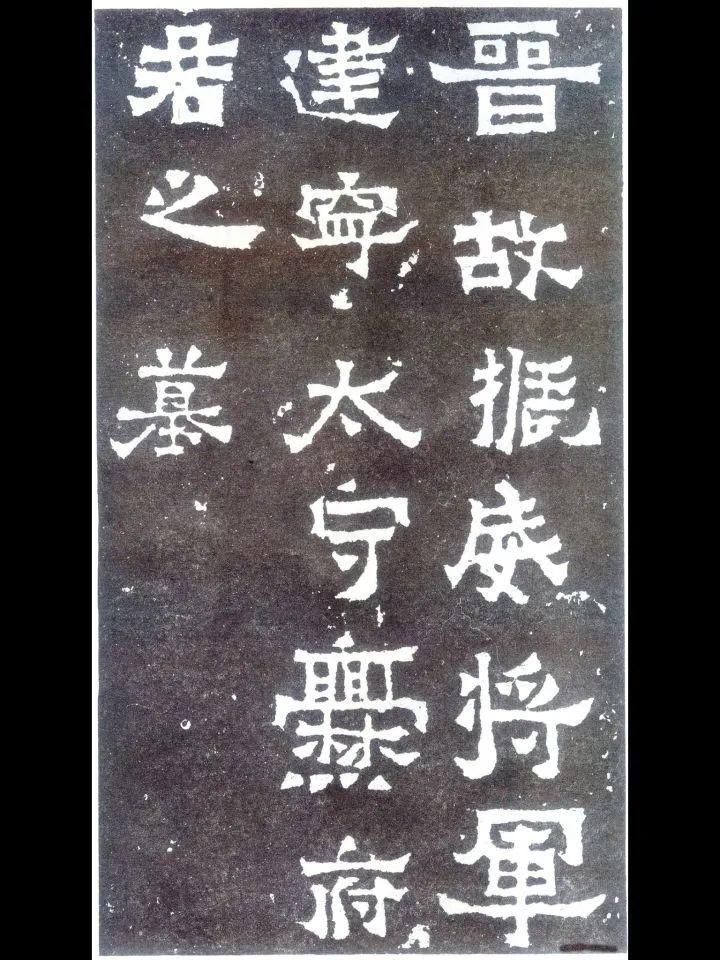 晉故振威將軍
建寧太守爨府
君之墓